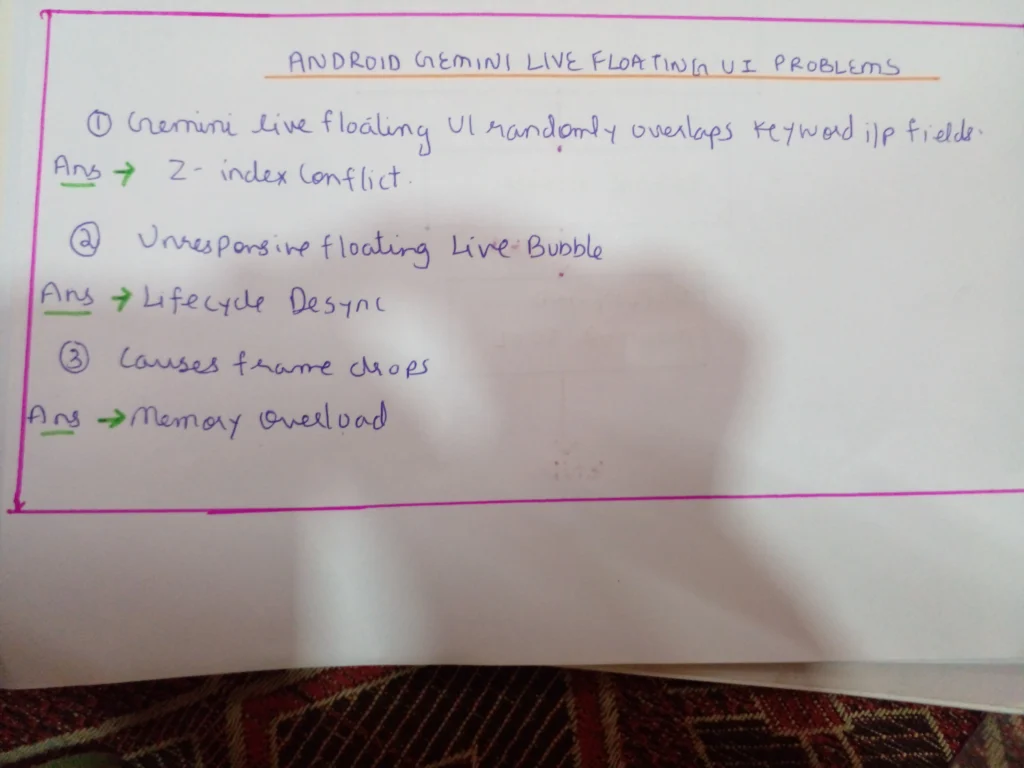 ANDROID GEMINI LIVE FLOATING UI PROBLEMS
① Gemini live floating UI randomly overlaps keyword i/p fields.
Ans → Z-index Conflict.
② Unresponsive floating Live Bubble
Ans → Lifecycle Desync
③ Causes frame drops
Ans → Memory Overload